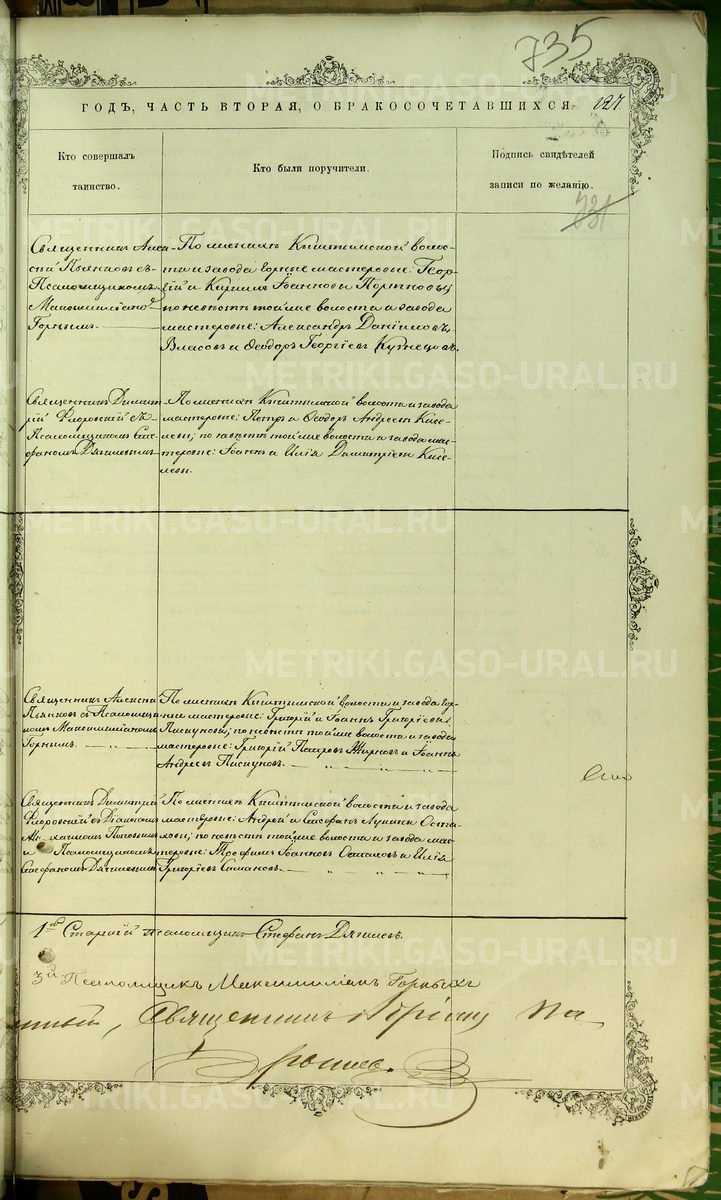 735
ГОДЪ, ЧАСТЬ ВТОРАЯ, О БРАКОСОЧЕТАВШИХСЯ. 127
Кто совершалъ
таинство.
Кто были поручители.
Подпись свидѣтелей
записи по желанію.
731
Священникъ Алек-
сій Пьянковъ съ
Псаломщикомъ
Максимиліаномъ
Горныхъ.
По женихѣ: Кыштымской волос-
ти и завода горные мастеровые: Геор-
гій и Кириллъ Іоанновы Портновы;
по невѣстѣ той же волости и завода
мастеровые: Александръ Даніиловъ
Власовъ и Ѳеодоръ Георгіевъ Кузнецовъ.
Священникъ Димит-
рій Флоровскій съ
Псаломщикомъ Сте-
фаномъ Дягилевымъ.
По женихѣ: Кыштымской волости и завода
мастеровые: Петръ и Ѳеодоръ Андреевы Кисе-
левы; по невѣстѣ той же волости и завода мас-
теровые: Іоаннъ и Илія Димитріевы Кисе-
левы.
Священникъ Алексій
Пьянковъ съ Псаломщи-
комъ Максимиліаномъ
Горнымъ.
По женихѣ: Кыштымской волости и завода гор-
ные мастеровые: Григорій и Іоаннъ Григорьевы
Пискуновы; по невѣстѣ той же волости и завода
мастеровые: Григорій Жирновъ и Іоаннъ
Андреевъ Пискуновъ.
Священникъ Димитрій
Флоровскій съ Діакономъ
Поповымъ
и Псаломщикомъ
Стефаномъ Дягилевымъ.
По женихѣ: Кыштымской волости и завода
мастеровые: Андрей и Стефанъ Лукины
по невѣстѣ той же волости и завода мас-
теровые: Трофимъ Іоанновъ и Илія
Григорьевъ
1й Старшій псаломщикъ Стефанъ Дягилевъ.
3й Псаломщикъ Максимиліанъ Горныхъ
Священникъ
METRIKI.GASO-URAL.RU